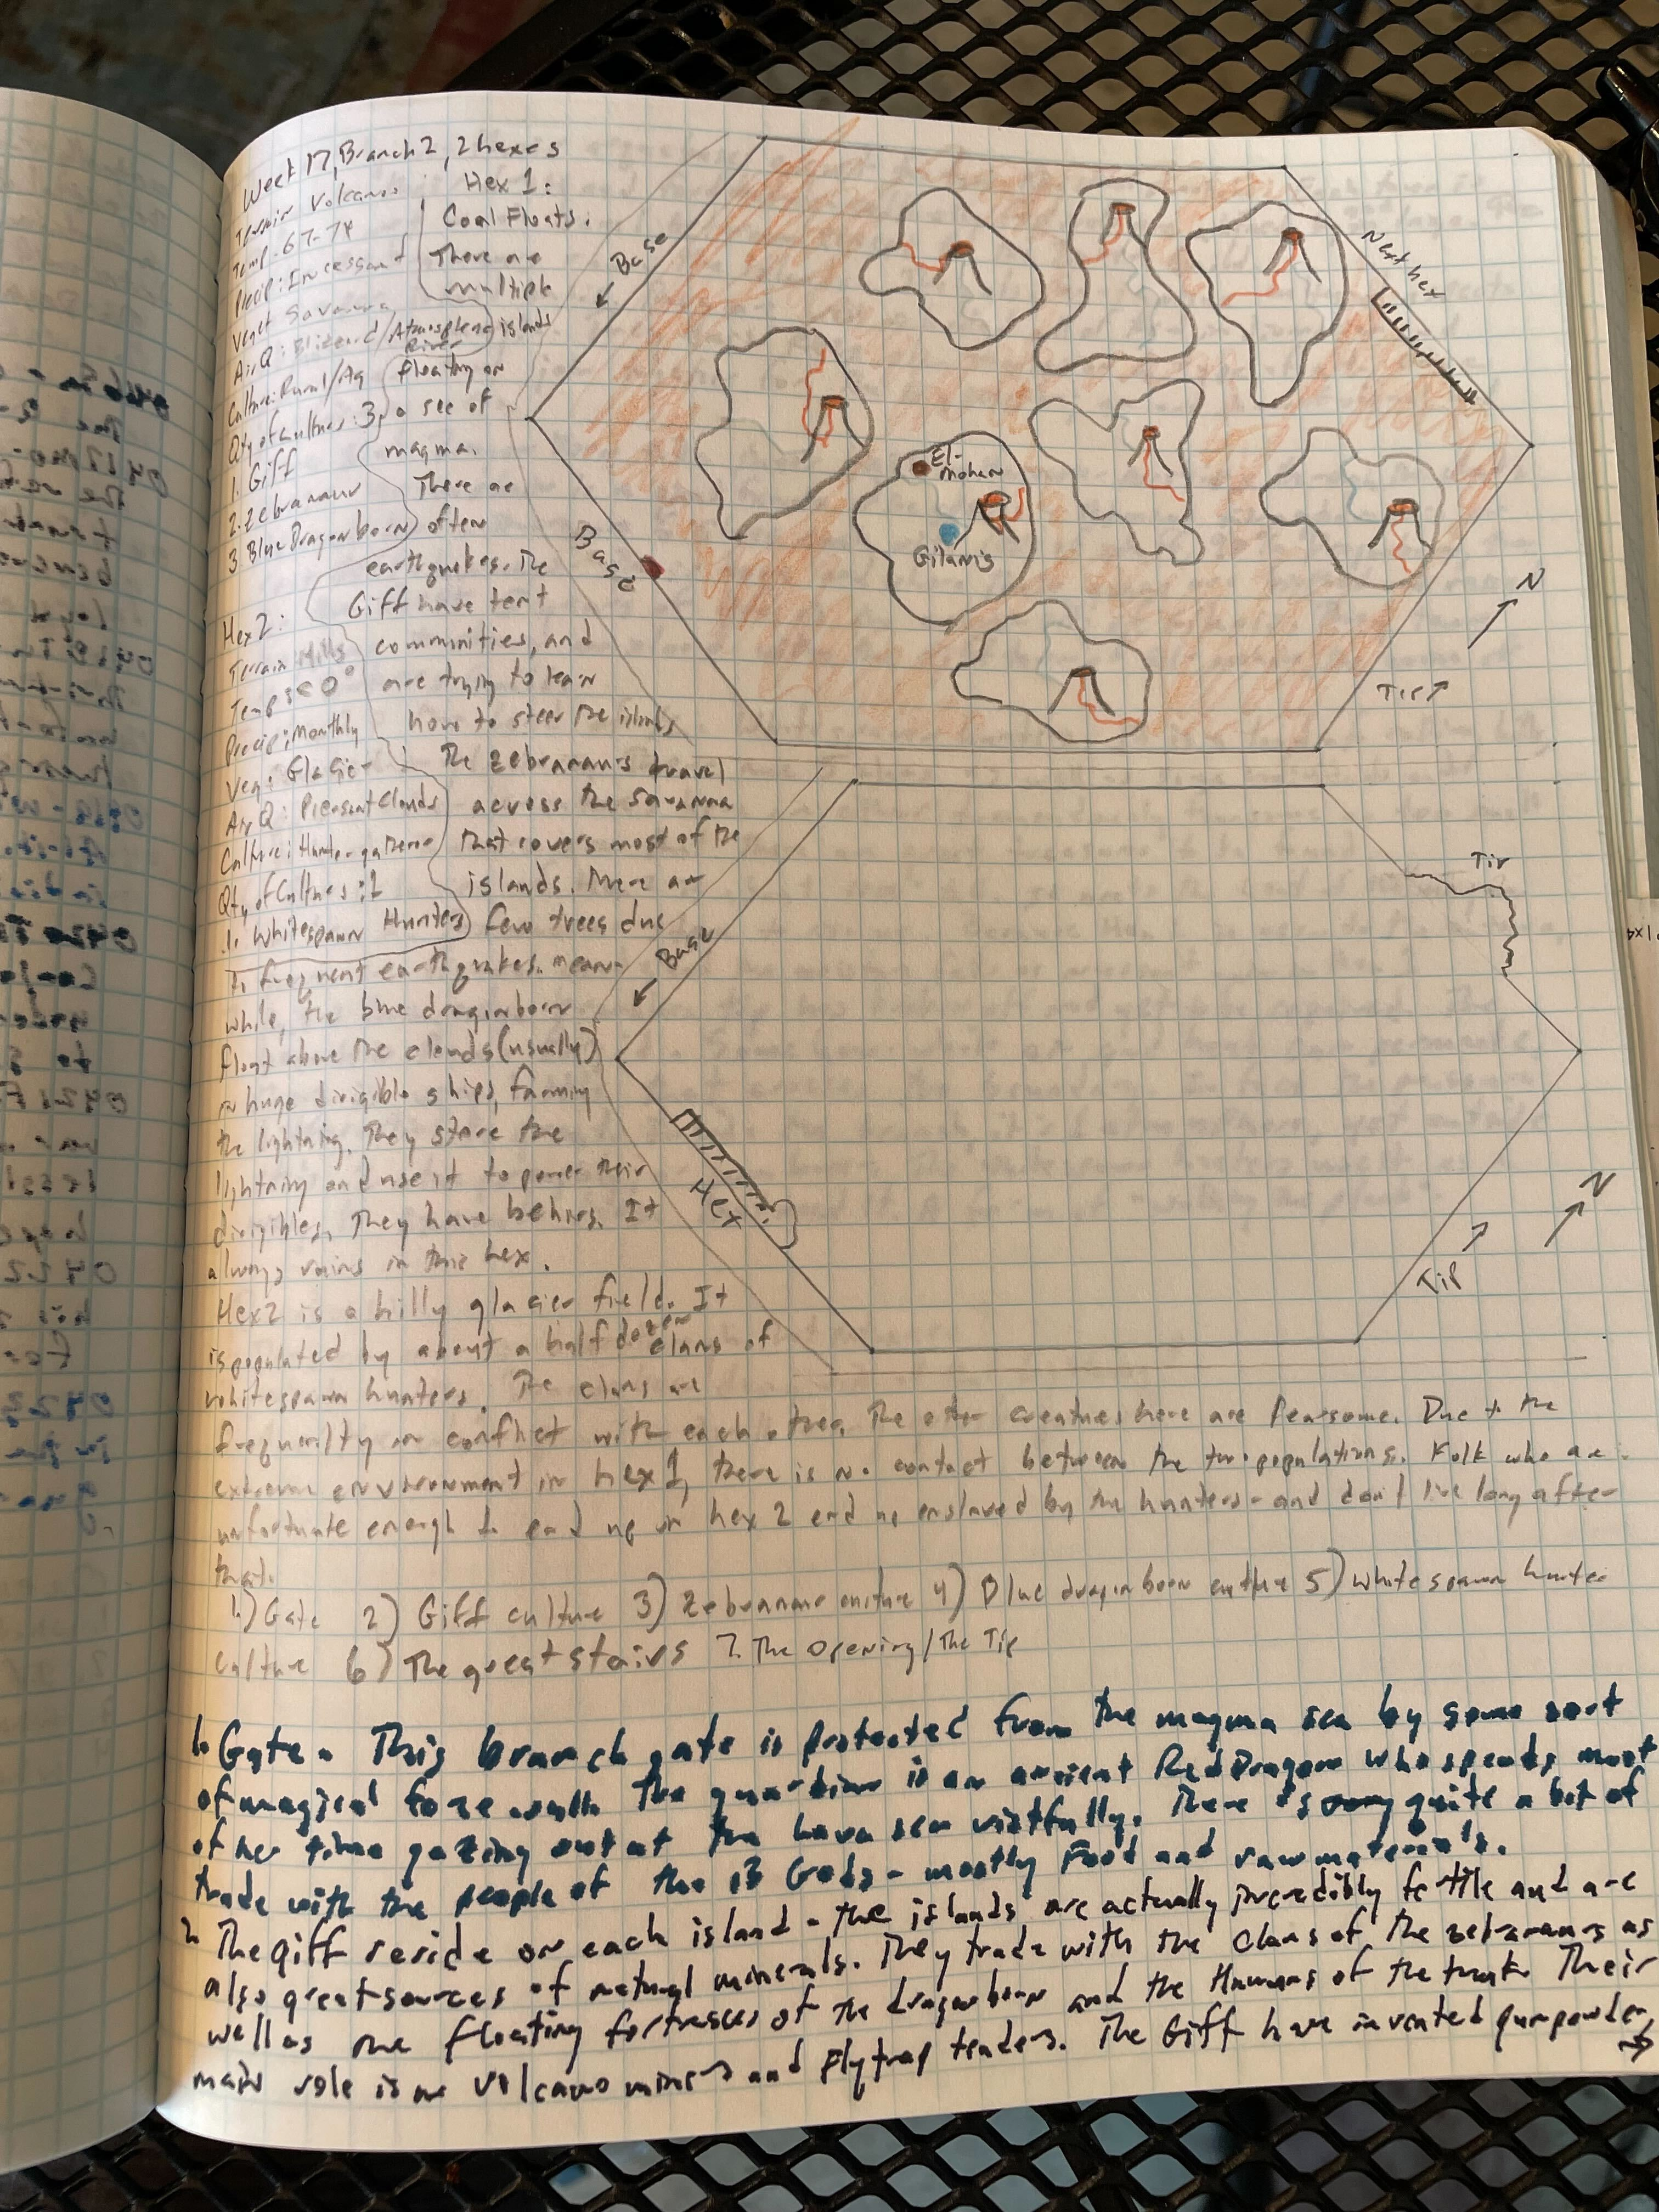 Week 17, Branch 2, 2 hexes
Terrain Volcanos
Temp: 67-74
Precip: Incessant
Veget Savanna
AirQ: Blizzard/Atmosphere River
Culture: Rural/Ag
Qty of Cultures: 3
1. Giff
2. Zebranaur
3 Blue Dragonborn
Hex 2:
Terrain Hills
Temp: < 0°
Precip: Monthly
Veg: Glacier
AirQ: Pleasant Clouds
Culture: Hunter-gatherer
Qty of Cultures: 1
1. Whitespawn Hunters
Hex 1:
Coal Floats.
There are
multiple
islands
floating on
a sea of
magma.
There are
often
earthquakes. The
Giff have tent
communities, and
are trying to learn
how to steer the islands
The zebranaurs travel
across the savanna
that covers most of the
islands. There are
few trees due
to frequent earthquakes. mean-
while, the blue dragonborn
float above the clouds (usually)
in huge dirigible ships, farming
the lightning. They store the
lightning and use it to power their
dirigibles. They have behirs. It
always rains in this hex.
Hex 2 is a hilly glacier field. It
is populated by about a half dozen clans of
whitespawn hunters. The clans are
frequently in conflict with each other. The other creatures here are fearsome. Due to the
extreme environment in hex 1, there is no contact between the two populations. Folk who are
unfortunate enough to end up in hex 2 end up enslaved by the hunters - and don't live long after
that.
1.) Gate 2) Giff culture 3) Zebranaur culture 4) Blue dragonborn culture 5) Whitespawn hunter
culture 6) The great stairs 7. The Opening/The Tip
1. Gate. This branch gate is protected from the magma sea by some sort
of magical force wall. The guardian is an ancient Red Dragon who spends most
of her time gazing out at the lava sea wistfully. There is quite a bit of
trade with the people of the 13 Gods - mostly Food and raw materials.
2. The giff reside on each island - the islands are actually incredibly fertile and are
also great sources of natural minerals. They trade with the clans of the zebranaurs as
well as the floating fortresses of the dragonborn and the Humans of the trunk. Their
main role is as volcano miners and flytrap tenders. The Giff have invented gunpowder,
→
Base
Next hex
El-
Mohan
Gilanis
Base
N
Tip
Tip
Base
Hex
N
Tip